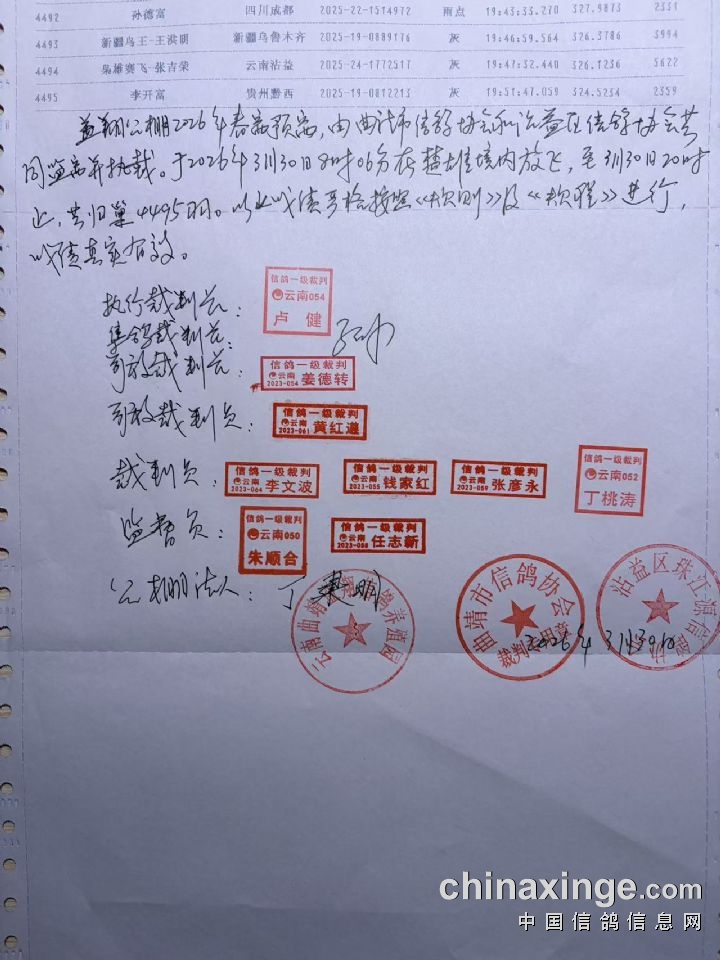 4492 孙德富 四川成都 2025-22-1514972 雨点 19:43:33.270 327.9873 2331
4493 新疆鸟王-王洪明 新疆乌鲁木齐 2025-19-0889176 灰 19:46:59.564 326.3786 3994
4494 枭雄赛飞-张吉荣 云南沾益 2025-24-1772517 灰 19:47:32.440 326.1236 5622
4495 李开富 贵州黔西 2025-19-0812213 灰 19:51:47.059 324.5234 2359
益翔公棚2026年春赛预赛，由曲靖市信鸽协会和沾益区信鸽协会共
同监赛并执裁。于2026年3月30日8时06分在楚雄境内放飞，至3月30日20时
止，共归巢4495羽。以上成绩严格按照《规则》及《规程》进行，
成绩真实有效。
执行裁判长：
信鸽一级裁判
云南054
卢健
集鸽裁判长：
司放裁判长：
信鸽一级裁判
云南
2023-054 姜德转
司放裁判员：
信鸽一级裁判
云南
2023-061 黄红遵
裁判员：
信鸽一级裁判
云南
2023-064 李文波
信鸽一级裁判
云南
2023-055 钱家红
信鸽一级裁判
云南
2023-059 张彦永
信鸽一级裁判
云南052
丁桃涛
监督员：
信鸽一级裁判
云南050
朱顺合
信鸽一级裁判
云南
任志新
公棚法人：丁
云南曲靖 翔 鸽养殖园
曲靖市信鸽协会
裁判专用章
沾益区珠江源信鸽协
2026年3月30日
chinaxinge.com
中国信鸽信息网